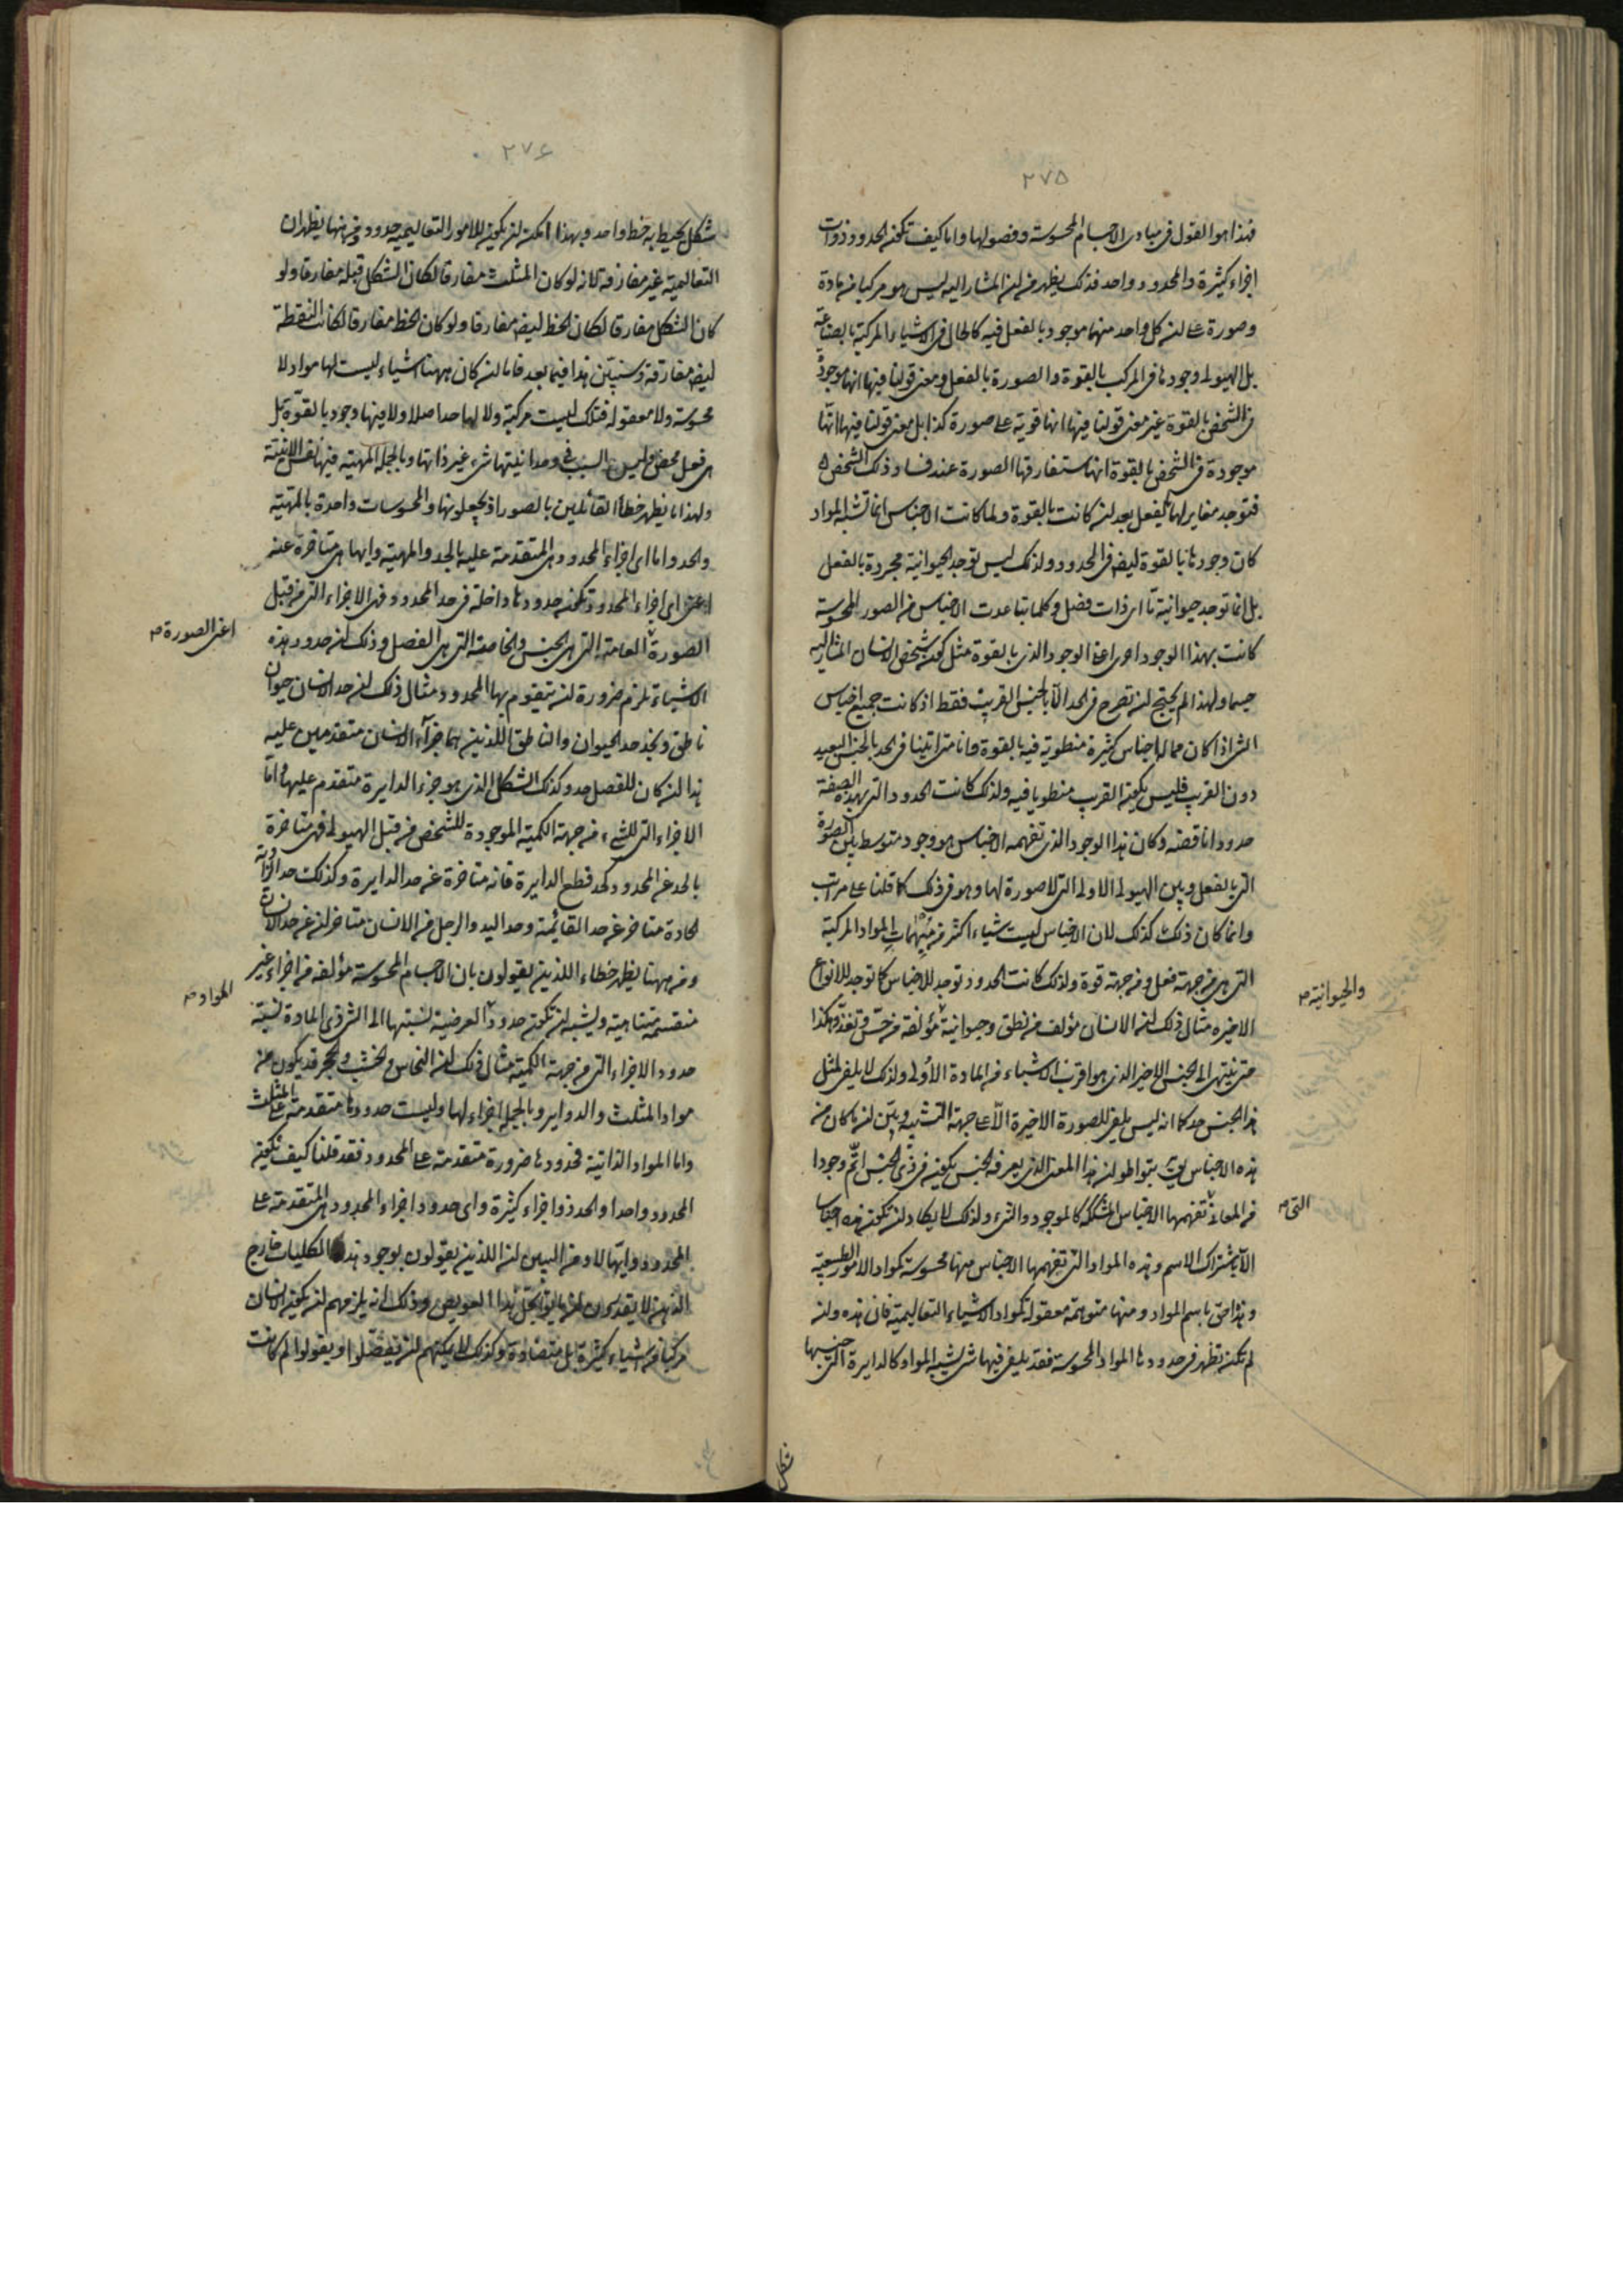 ٢٧٥
فهذا هو القول فى مبادى الاجسام المحسوسة وفصولها واما كيف تكون الحدود ذوات
اجزاء كثيرة والمحدود واحد فذلك يظهر من ان المشار اليه ليس هو مركبا من مادة
وصورة على ان كل واحد منهما موجود بالفعل فيه كالحال فى الاشياء المركبة بالصناعة
بل الهيولى وجودها فى المركب بالقوة والصورة بالفعل ومعنى قولنا فيها انها موجودة
فى الشخص بالقوة غير معنى قولنا فيها انها قوية على صورة كذا بل معنى قولنا فيها انها
موجودة فى الشخص بالقوة انها ستفارقها الصورة عند فساد ذلك الشخص
فتوجد مغاير لها بالفعل بعد ان كانت بالقوة ولما كانت الاجناس انما تشبه المواد
كان وجودها بالقوة ايضا فى المحدود ولذلك ليس توجد الحيوانية مجردة بالفعل
بل انما توجد حيوانية ما اى ذات فصل وكلما تباعدت الاجناس من الصور المحسوسة
كانت بهذا الوجود احرى اعنى الوجود الذى بالقوة مثل كون شخص الانسان المشار اليه
جسما ولهذا لم يحتج ان تصرح فى الحد الا بالجنس القريب فقط اذ كانت جميع اجناس
الشئ اذا كان مما له اجناس كثيرة منطوية فيه بالقوة واما متى اتينا فى الحد بالجنس البعيد
دون القريب فليس يكون القريب منطويا فيه ولذلك كانت الحدود التى بهذه الصفة
حدودا ناقصة وكان هذا الوجود الذى تفهمه الاجناس هو وجود متوسط بين الصورة
التى بالفعل وبين الهيولى الاولى التى لا صورة لها وهو فى ذلك كما قلنا على مراتب
وانما كان ذلك كذلك لان الاجناس ليست شياء اكثر من شبيهات المواد المركبة
التى هى من جهة فعل ومن جهة قوة ولذلك كانت الحدود توجد للاجناس كما توجد للانواع
الاخيره مثال ذلك ان الانسان مؤلف من نطق وحيوانية مؤلفة من حس وتغذ وهكذا
والحيوانية صح
حتى ينتهى الى الجنس الاخير الذى هو اقرب الاشياء من المادة الاولى ولذلك لا يلفى لمثل
هذا الجنس حد كما انه ليس يلفى للصورة الاخيرة الا على جهة التشبيه وبين ان ما كان من
هذه الاجناس يقال بتواطو ان هذا المعنى الذى يعرفه الجنس يكون فى ذى الجنس اتم وجودا
من المعانى تفهمها الاجناس المشككة كالموجود والشئ ولذلك لا يكاد ان تكون هذه اجناسا
التى صح
الا باشتراك الاسم وهذه المواد التى تفهمها الاجناس منها محسوسة كمواد الامور الطبيعية
وهذا حق باسم المواد ومنها متوهمة معقولة كمواد الاشياء التعاليمية فان هذه وان
لم تكن تظهر فى حدودها المواد المحسوسة فقد يلفى فيها شئ يشبه المواد كالدايرة التى جنسها
شكل
٢٧٦
شكل يحيط به خط واحد وبهذا امكن ان يكون للامور التعاليمية حدود ومن هنا يظهر ان
التعاليمية غير مفارقة لانه لو كان المثلث مفارقا لكان الشكل قبله مفارقا ولو
كان الشكل مفارقا لكان الخط ايضا مفارقا ولو كان الخط مفارقا لكانت النقطة
ايضا مفارقة وسنبين هذا فيما بعد فاما ان كان ههنا اشياء ليست لها مواد لا
محسوسة ولا معقولة فتلك ليست مركبة ولا لها حد اصلا ولا فيها وجود بالقوة بل
هى فعل محض وليس السبب فى وحدانيتها شئ غير ذاتها وبالجملة المهية فيها نفس الانية
ولهذا ما يظهر خطأ القائلين بالصور اذ يجعلونها والمحسوسات واحدة بالمهية
والحد واما اى اجزاء المحدود هى المتقدمة عليه بالحد والمهية وايها هى متاخرة عنه
اعنى اى اجزاء المحدود تكون حدودها داخلة فى حد المحدود فهى الاجزاء التى من قبل
الصورة العامة التى هى الجنس والخاصة التى هى الفصل وذلك ان حدود هذه
اعنى الصورة صح
الاشياء تلزم ضرورة ان يتقوم بها المحدود مثال ذلك ان حد الانسان حيوان
ناطق ونجد حد الحيوان والناطق اللذين هما جزآء الانسان متقدمين عليه
هذا ان كان للفصل حد وكذلك الشكل الذى هو جزء الدايرة متقدم عليها واما
الاجزاء التى للشئ من جهة الكمية الموجودة للشخص من قبل الهيولى فهى متاخرة
بالحد عن المحدود كحد قطع الدايرة فانه متاخرة عن حد الدايرة وكذلك حد الزاوية
الحادة متاخر عن حد القائمة وحد اليد والرجل من الانسان متاخر ان عن حد الانسان
ومن ههنا يظهر خطاء الذين يقولون بان الاجسام المحسوسة مؤلفه من اجزاء غير
منقسمة متناهية ويشبه ان تكون حدود العرضية نسبتها الى الشئ ذى المادة نسبة
المواد صح
حدود الاجزاء التى من جهة الكمية مثال ذلك ان النحاس والخشب والحجر قد يكون من
مواد المثلث والدواير وبالجملة اجزاء لها وليست حدودها متقدمة على المثلث
واما المواد الذاتية فحدودها ضرورة متقدمة على المحدود فقد قلنا كيف يكون
المحدود واحدا والحد ذو اجزاء كثيرة واى حدود اجزاء المحدود هى المتقدمة على
المحدود وايها لا ومن البين ان الذين يقولون بوجود هذه الكليات خارج
الذهن لا يقدرون ان ياتوا بحل هذا العويص وذلك انه يلزمهم ان يكون الانسان
مركبا من اشياء كثيرة بل متضادة وكذلك لا يمكنهم ان ينفصلوا او يقولوا لم كانت